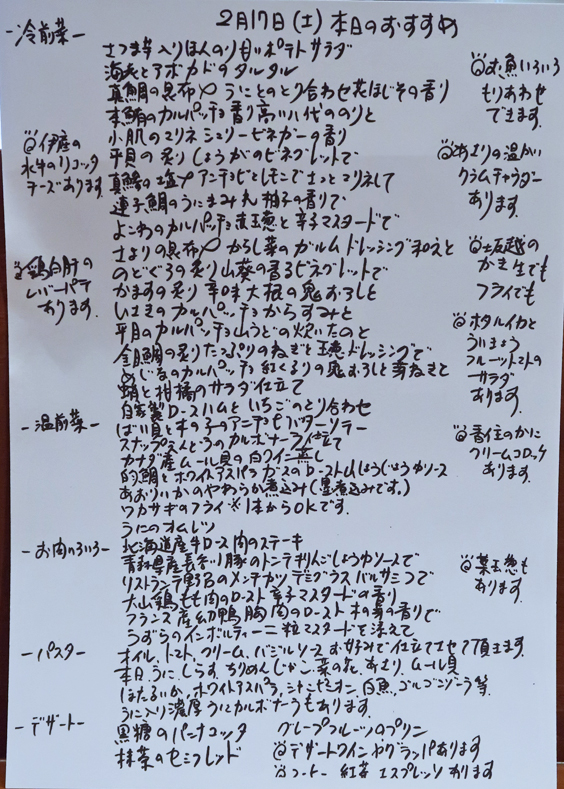 2月17日(土)本日のおすすめ
-冷前菜-
さつま芋入りほんのり甘いポテトサラダ
海老とアボカドのタルタル
真鯛の昆布〆 うにとのとり合わせ花ほじその香り
本鮪のカルパッチョ香り高い八代ののりと
小肌のマリネ シェリービネガーの香り
平貝の炙り しょうがのビネグレットで
真鯵の塩〆 アンチョビとレモンでさっとマリネして
連子鯛のうにまみれ 柚子の香りで
よこわのカルパッチョ 玉葱と辛子マスタードで
さよりの昆布〆 からし菜のガルムドレッシング和えと
のどぐろの炙り 山葵の香るビネグレットで
かますの炙り 辛味大根の鬼おろしと
いさきのカルパッチョ からすみと
平目のカルパッチョ 山うどの炊いたのと
金目鯛の炙り たっぷりのねぎと玉葱ドレッシングで
めじなのカルパッチョ 紅くるりの鬼おろしと芽ねぎと
蛸と柑橘のサラダ仕立て
自家製ロースハムといちごのとり合わせ
伊産の
水牛のリコッタ
チーズあります
鶏白肝の
ムースパテ
あります
お魚いろいろ
もりあわせ
できます。
あさりの温かい
クラムチャウダー
あります
坂越の
かき生でも
フライでも
ホタルイカと
ういきょう
フルーツトマトの
サラダ
あります
-温前菜-
ばい貝と木の子のアンチョビバターソテー
スナップえんどうのカルボナーラ仕立て
カナダ産ムール貝の白ワイン蒸し
的鯛とホワイトアスパラガスのロースト 山しょうじょうゆソース
あおりいかのやわらか煮込み(墨煮込みです。)
ワカサギのフライ ※1本からOKです。
うにのオムレツ
香住のかに
クリームコロッケ
あります
-お肉いろいろ-
北海道産牛ロース肉のステーキ
青森県産長谷川豚のトンテキりんごしょうゆソースで
リストランテ野呂のメンチカツ デミグラスバルサミコで
大山鶏もも肉のロースト 辛子マスタードの香り
フランス産幼鴨胸肉のロースト 木の芽の香りで
うずらのインボルティーニ 粒マスタードを添えて
葉玉葱も
あります
-パスタ-
オイル、トマト、クリーム、バジルソース お好みで仕立てさせて頂きます。
本日、うに、しらす、ちりめんじゃこ、菜の花、あさり、ムール貝
ほたるいか、ホワイトアスパラ、白魚、ゴルゴンゾーラ等
うに入り濃厚うにカルボナーラもあります
-デザート-
黒糖のパンナコッタ
グレープフルーツのプリン
抹茶のセミフレッド
デザートワインやグラッパあります
コーヒー 紅茶 エスプレッソあります